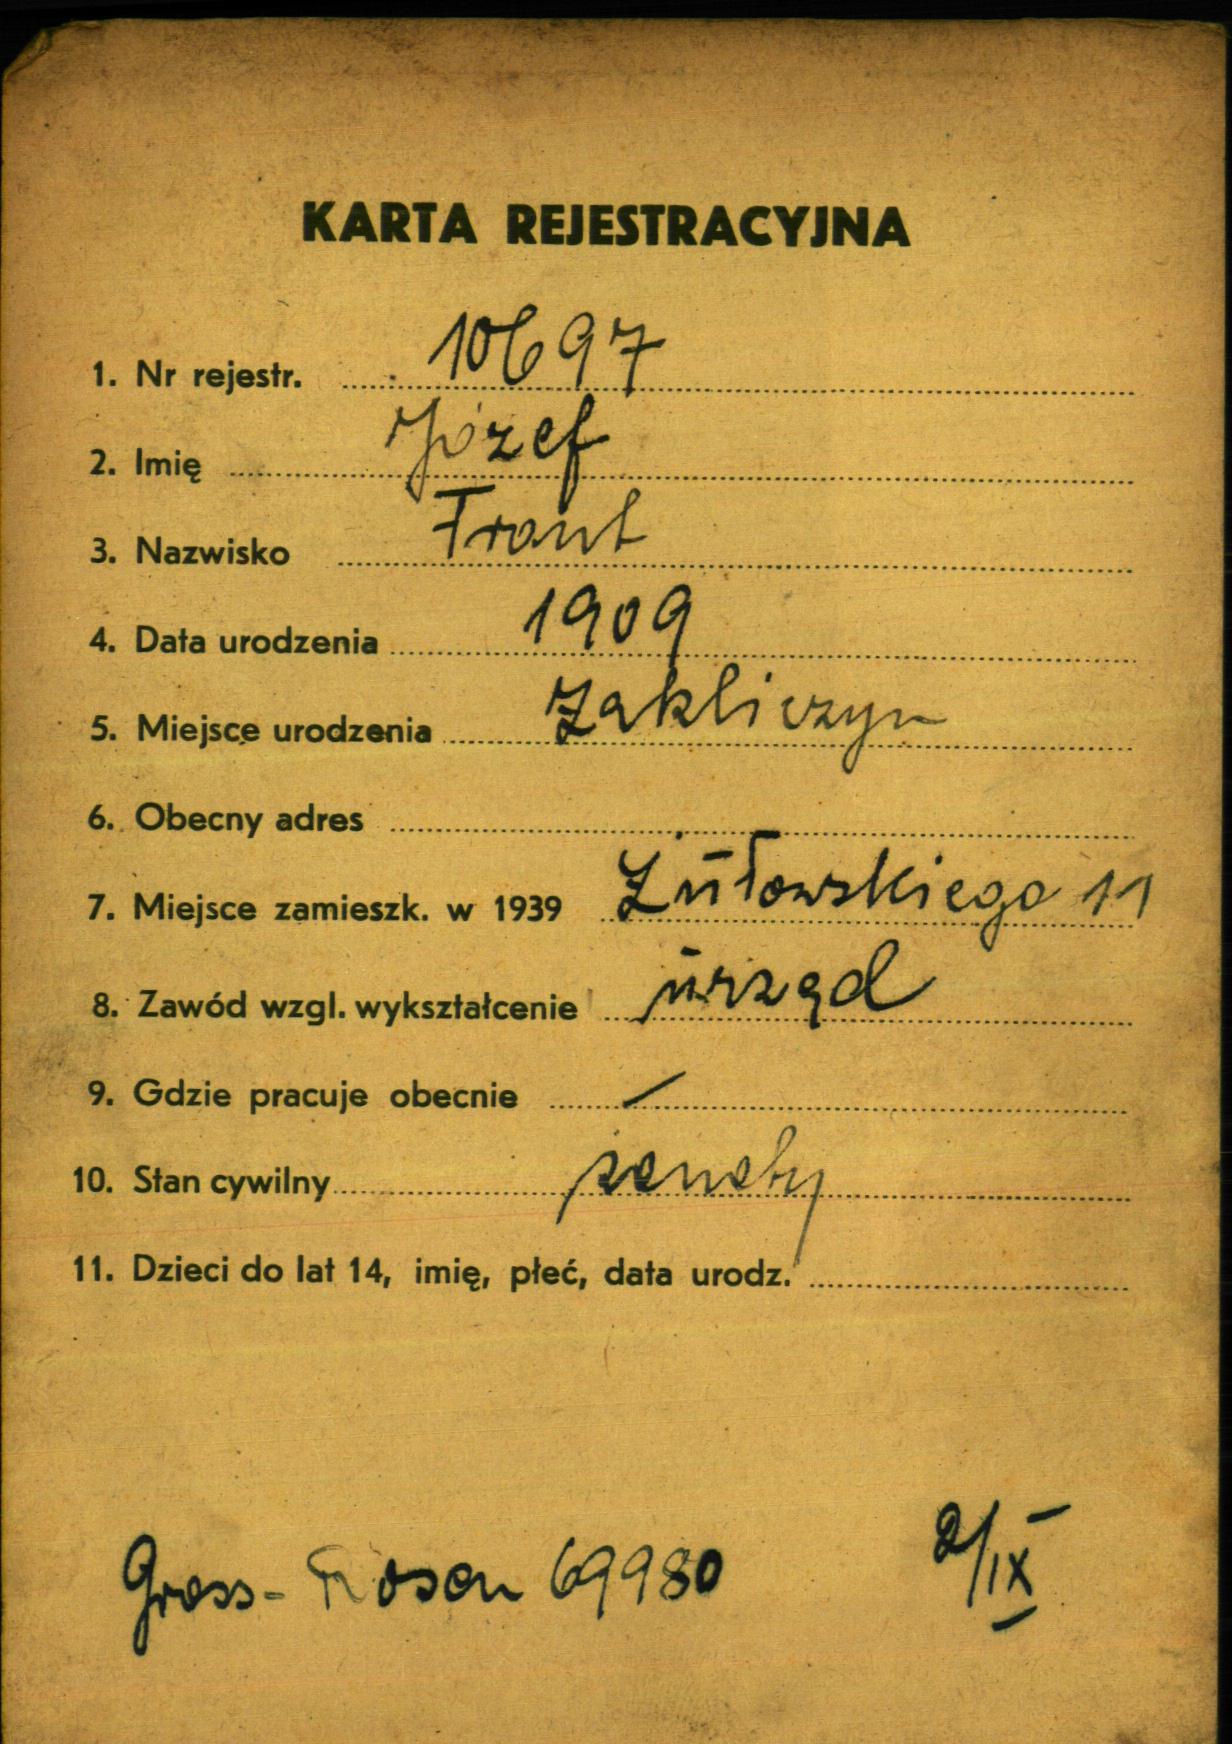 KARTA REJESTRACYJNA
1. Nr rejestr. 10697
2. Imię Józef
3. Nazwisko
4. Data urodzenia 1909
5. Miejsce urodzenia Zakliczyn
6. Obecny adres
7. Miejsce zamieszk. w 1939 Żułowskiego 11
8. Zawód wzgl. wykształcenie urząd
9. Gdzie pracuje obecnie —
10. Stan cywilny żonaty
11. Dzieci do lat 14, imię, płeć, data urodz.
Gross-Rosen 69980 2/IX